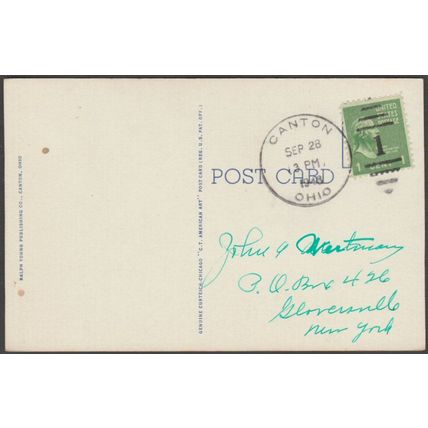 RALPH YOUNG PUBLISHING CO., CANTON, OHIO
GENUINE CURTEICH-CHICAGO "C.T. AMERICAN ART" POST CARD (REG. U.S. PAT. OFF.)
POST CARD
CANTON
SEP 28
3 PM
OHIO
UNITED
STATES
POSTAGE
1
1 CENT
John A
P.O. Box 426
Gloversville
New York